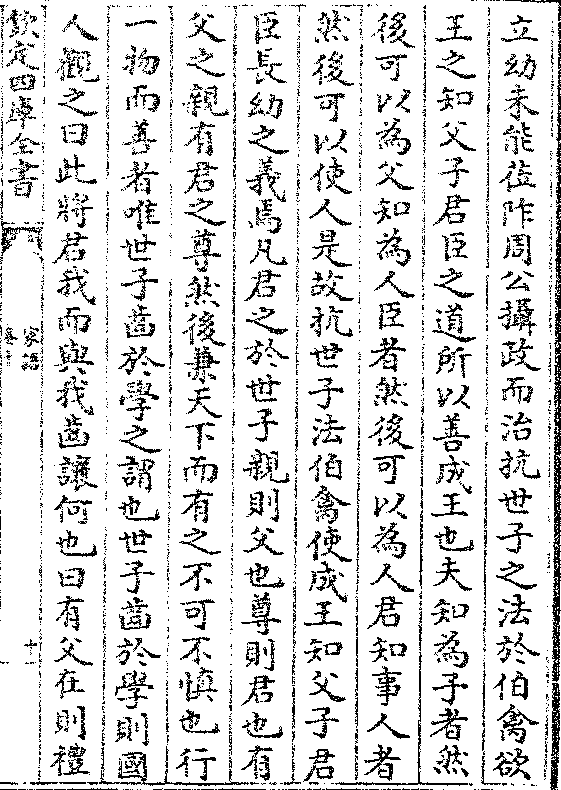 立幼未能莅阼周公攝政而治抗世子之法於伯禽欲
王之知父子君臣之道所以善成王也夫知為子者然
後可以為父知為人臣者然後可以為人君知事人者
然後可以使人是故抗世子法伯禽使成王知父子君
臣長幼之義焉凡君之於世子親則父也尊則君也有
父之親有君之尊然後兼天下而有之不可不慎也行
一物而善者唯世子齒於學之謂也世子齒於學則國
人觀之曰此將君我而與我齒讓何也曰有父在則禮
欽定四庫全書
家語